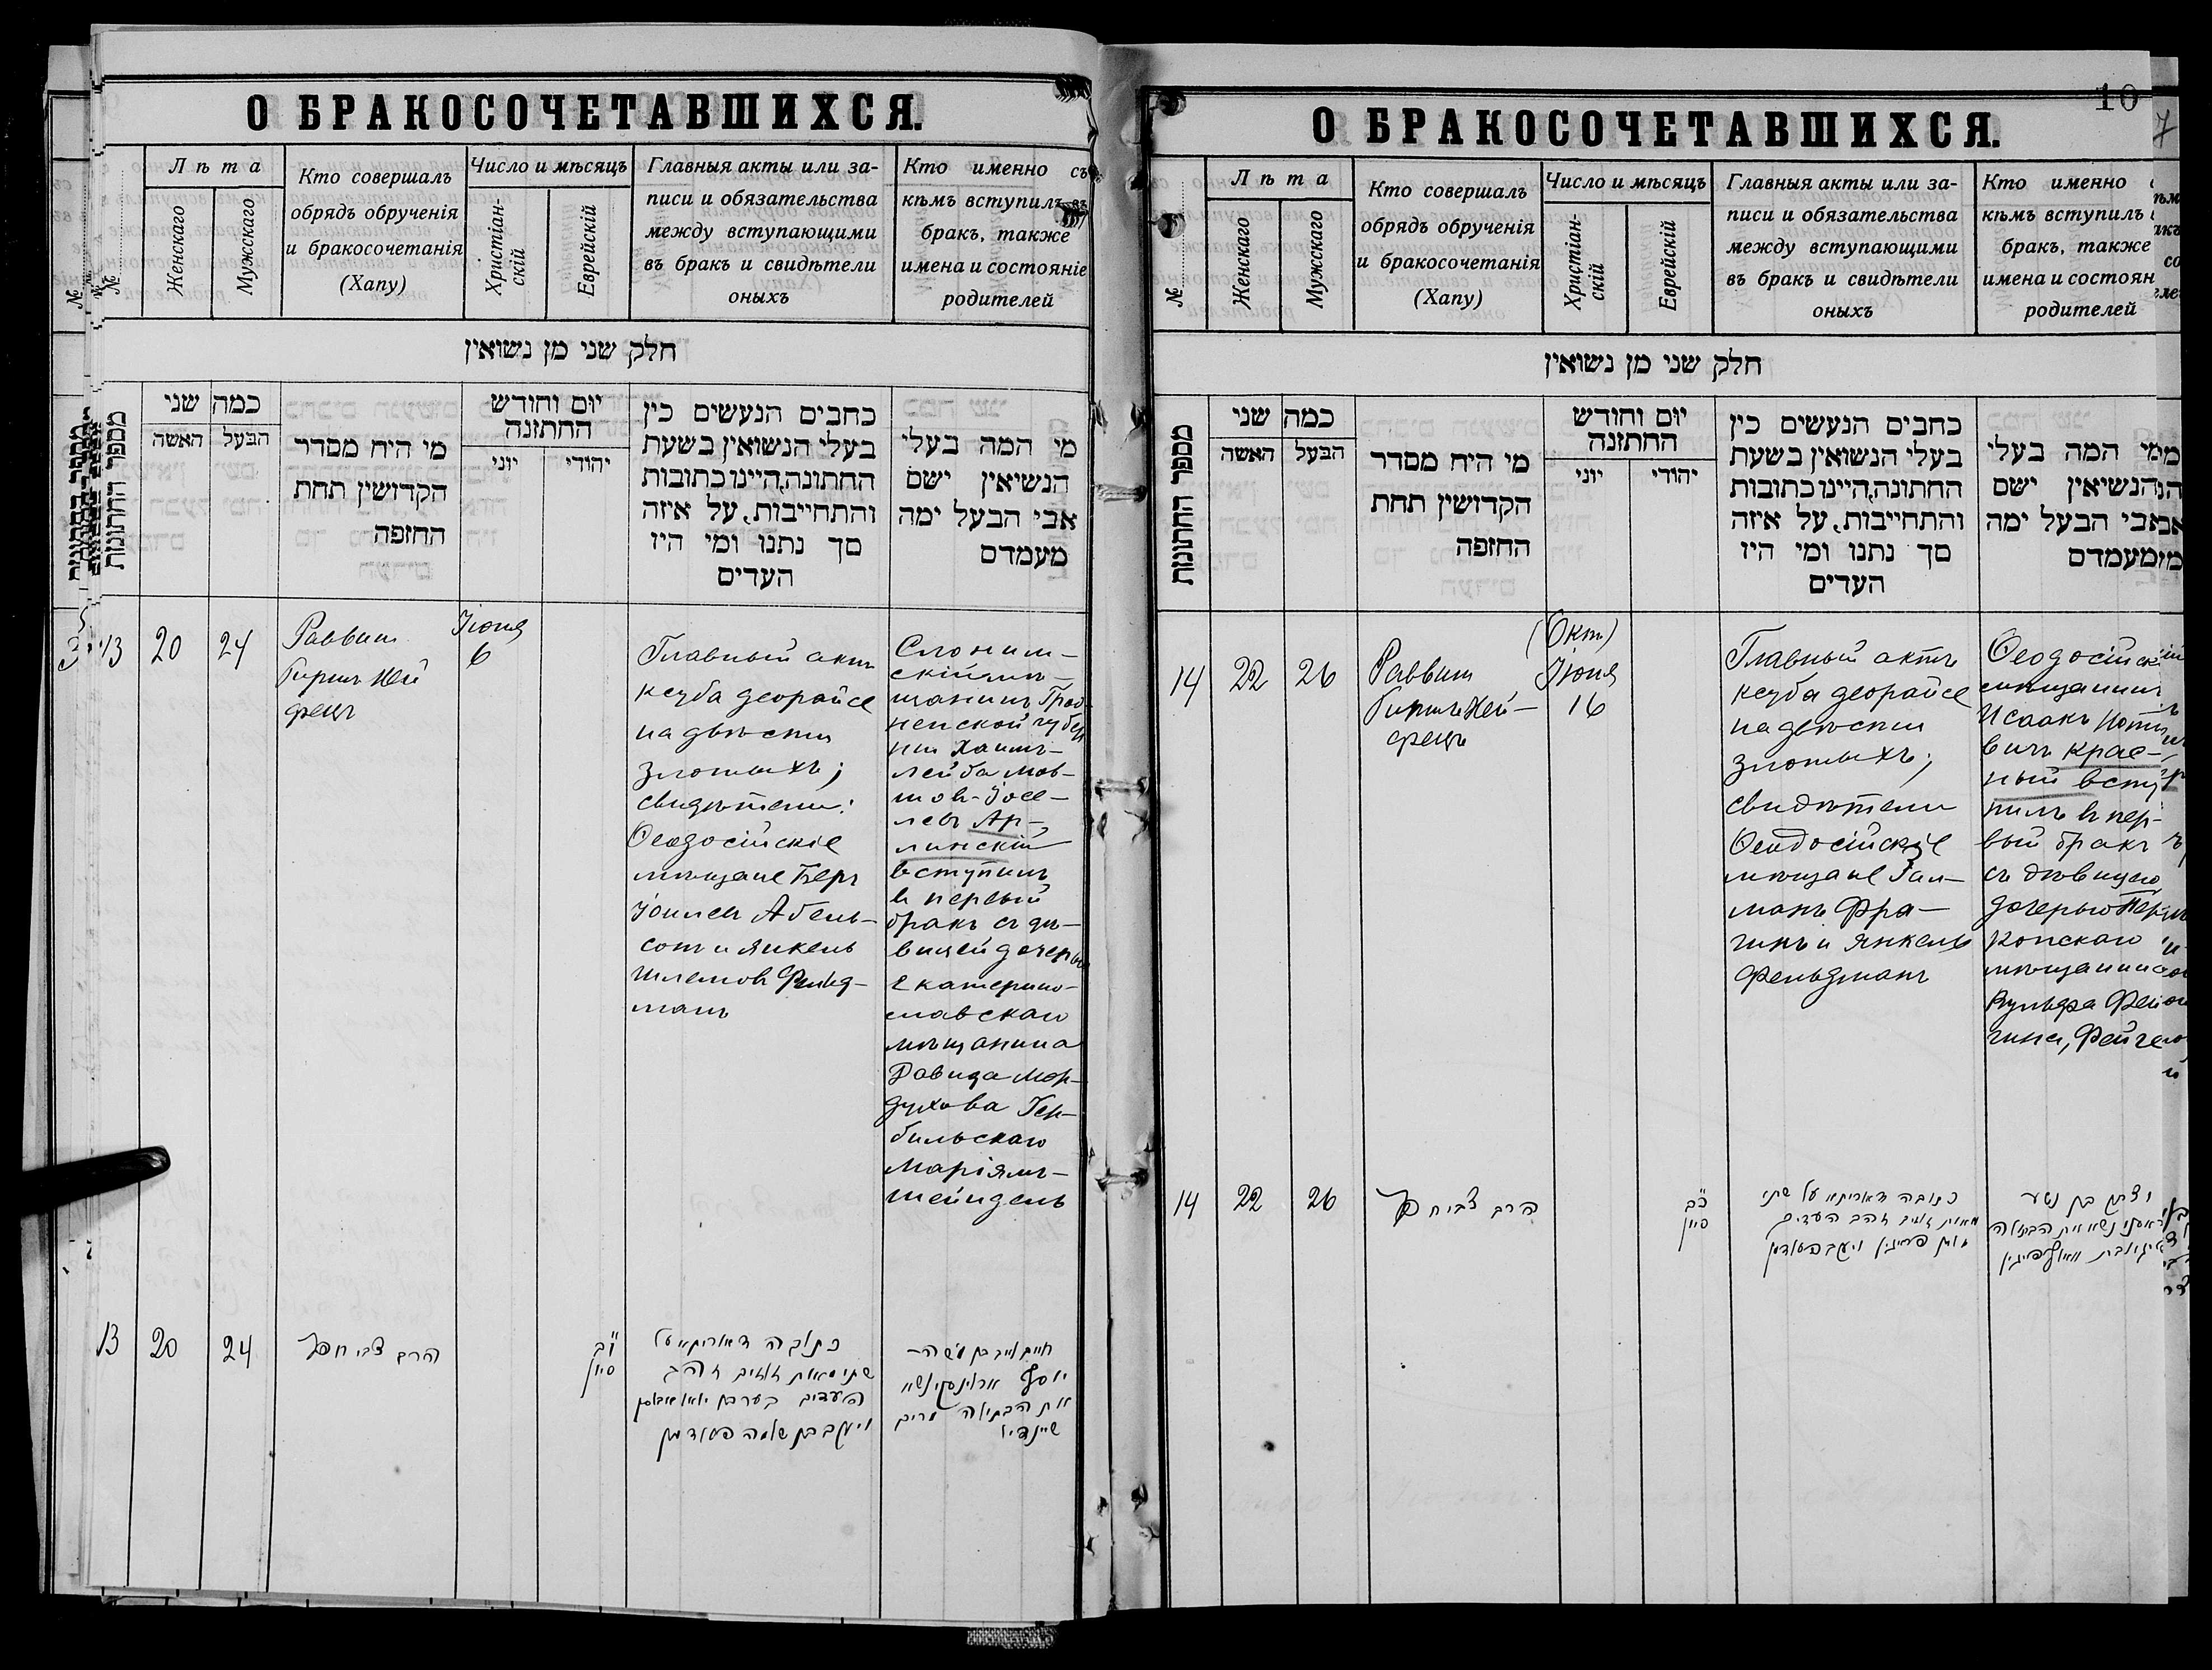 О БРАКОСОЧЕТАВШИХСЯ.
№
Лѣта
Женскаго
Мужскаго
Кто совершалъ
обрядъ обрученія
и бракосочетанія
(Хапу)
Число и мѣсяцъ
Христіан-
скій
Еврейскій
Главныя акты или за-
писи и обязательства
между вступающими
въ бракъ и свидѣтели
оныхъ
Кто именно съ
кѣмъ вступилъ въ
бракъ, также
имена и состояніе
родителей
חלק שני מן נשואין
מספר החתונות
כמה שני
האשה
הבעל
מי היח מסדר
הקדושין תחת
החזפה
יום וחודש
החתזנה
יוני
יהודי
כחבים הנעשים כין
בעלי הנשואין בשעת
החתונה, היינו כתובות
והתחייבות, על איזה
סך נתנו ומי היז
העדים
מי המה בעלי
הנשיאין ישם
אבי הבעל ימה
מעמדם
13
20
24
Раввин
Гиршъ Хей
фецъ
Іюня
6
Главный актъ
ксуба деорайсе
на двѣсти
злотыхъ;
свидѣтели:
Ѳеодосійскіе
мѣщане Беръ
Іоилевъ Абель-
сонъ и Янкель
Шлемовъ Фельд-
манъ
Слоним-
скій мѣ-
щанинъ Грод-
ненской губер
ніи Хаимъ-
Лейба Мов-
шовъ-Іосе-
левъ Ар-
линскій
вступилъ
въ первый
бракъ съ дѣ-
вицей дочерью
Екатерино-
славскаго
мѣщанина
Давида Мор-
духова Гер-
бильскаго
Маріямъ-
Шейндель
13
20
24
הרב צבי חפץ
י"ב
סיון
כתובה דאוריתא על
שתי מאות זוזים זהב
העדים בער בן יואל אבלסן
ויעקב בן שלמה פעלדמן
חיים לייב בן משה-
יוסף ארלינסקי נשא
את הבתולה מרים
שיינדיל
О БРАКОСОЧЕТАВШИХСЯ.
10
7
№
Лѣта
Женскаго
Мужскаго
Кто совершалъ
обрядъ обрученія
и бракосочетанія
(Хапу)
Число и мѣсяцъ
Христіан-
скій
Еврейскій
Главныя акты или за-
писи и обязательства
между вступающими
въ бракъ и свидѣтели
оныхъ
Кто именно
кѣмъ вступилъ
бракъ, также
имена и состоян
родителей
חלק שני מן נשואין
מספר החתונות
כמה שני
האשה
הבעל
מי היח מסדר
הקדושין תחת
החזפה
יום וחודש
החתזנה
יוני
יהודי
כחבים הנעשים כין
בעלי הנשואין בשעת
החתונה, היינו כתובות
והתחייבות, על איזה
סך נתנו ומי היז
העדים
מי המה בעלי
הנשיאין ישם
אבי הבעל ימה
מעמדם
14
22
26
Раввин
Гиршъ Хей-
фецъ
(Окт)
Іюня
16
Главный актъ
ксуба деорайсе
на двѣсти
злотыхъ;
свидѣтели
Ѳеодосійскіе
мѣщане Зал-
манъ Фра-
гинъ и Янкель
Фельдманъ
Ѳеодосійскій
мѣщанинъ
Исаакъ
вичъ Крас-
ный всту
пилъ въ пер-
вый бракъ
съ дѣвицею
дочерью Пере
копскаго
мѣщанина
Вульфа Фей
гина, Фейгею
14
22
26
הרב צבי חפץ
כ"ב
סיון
כתובה דאוריתא על שתי
מאות זוזים זהב העדים
זלמן פרייגין ויעקב פעלדמן
יצחק בן נטע
קראסני נשא את הבתולה